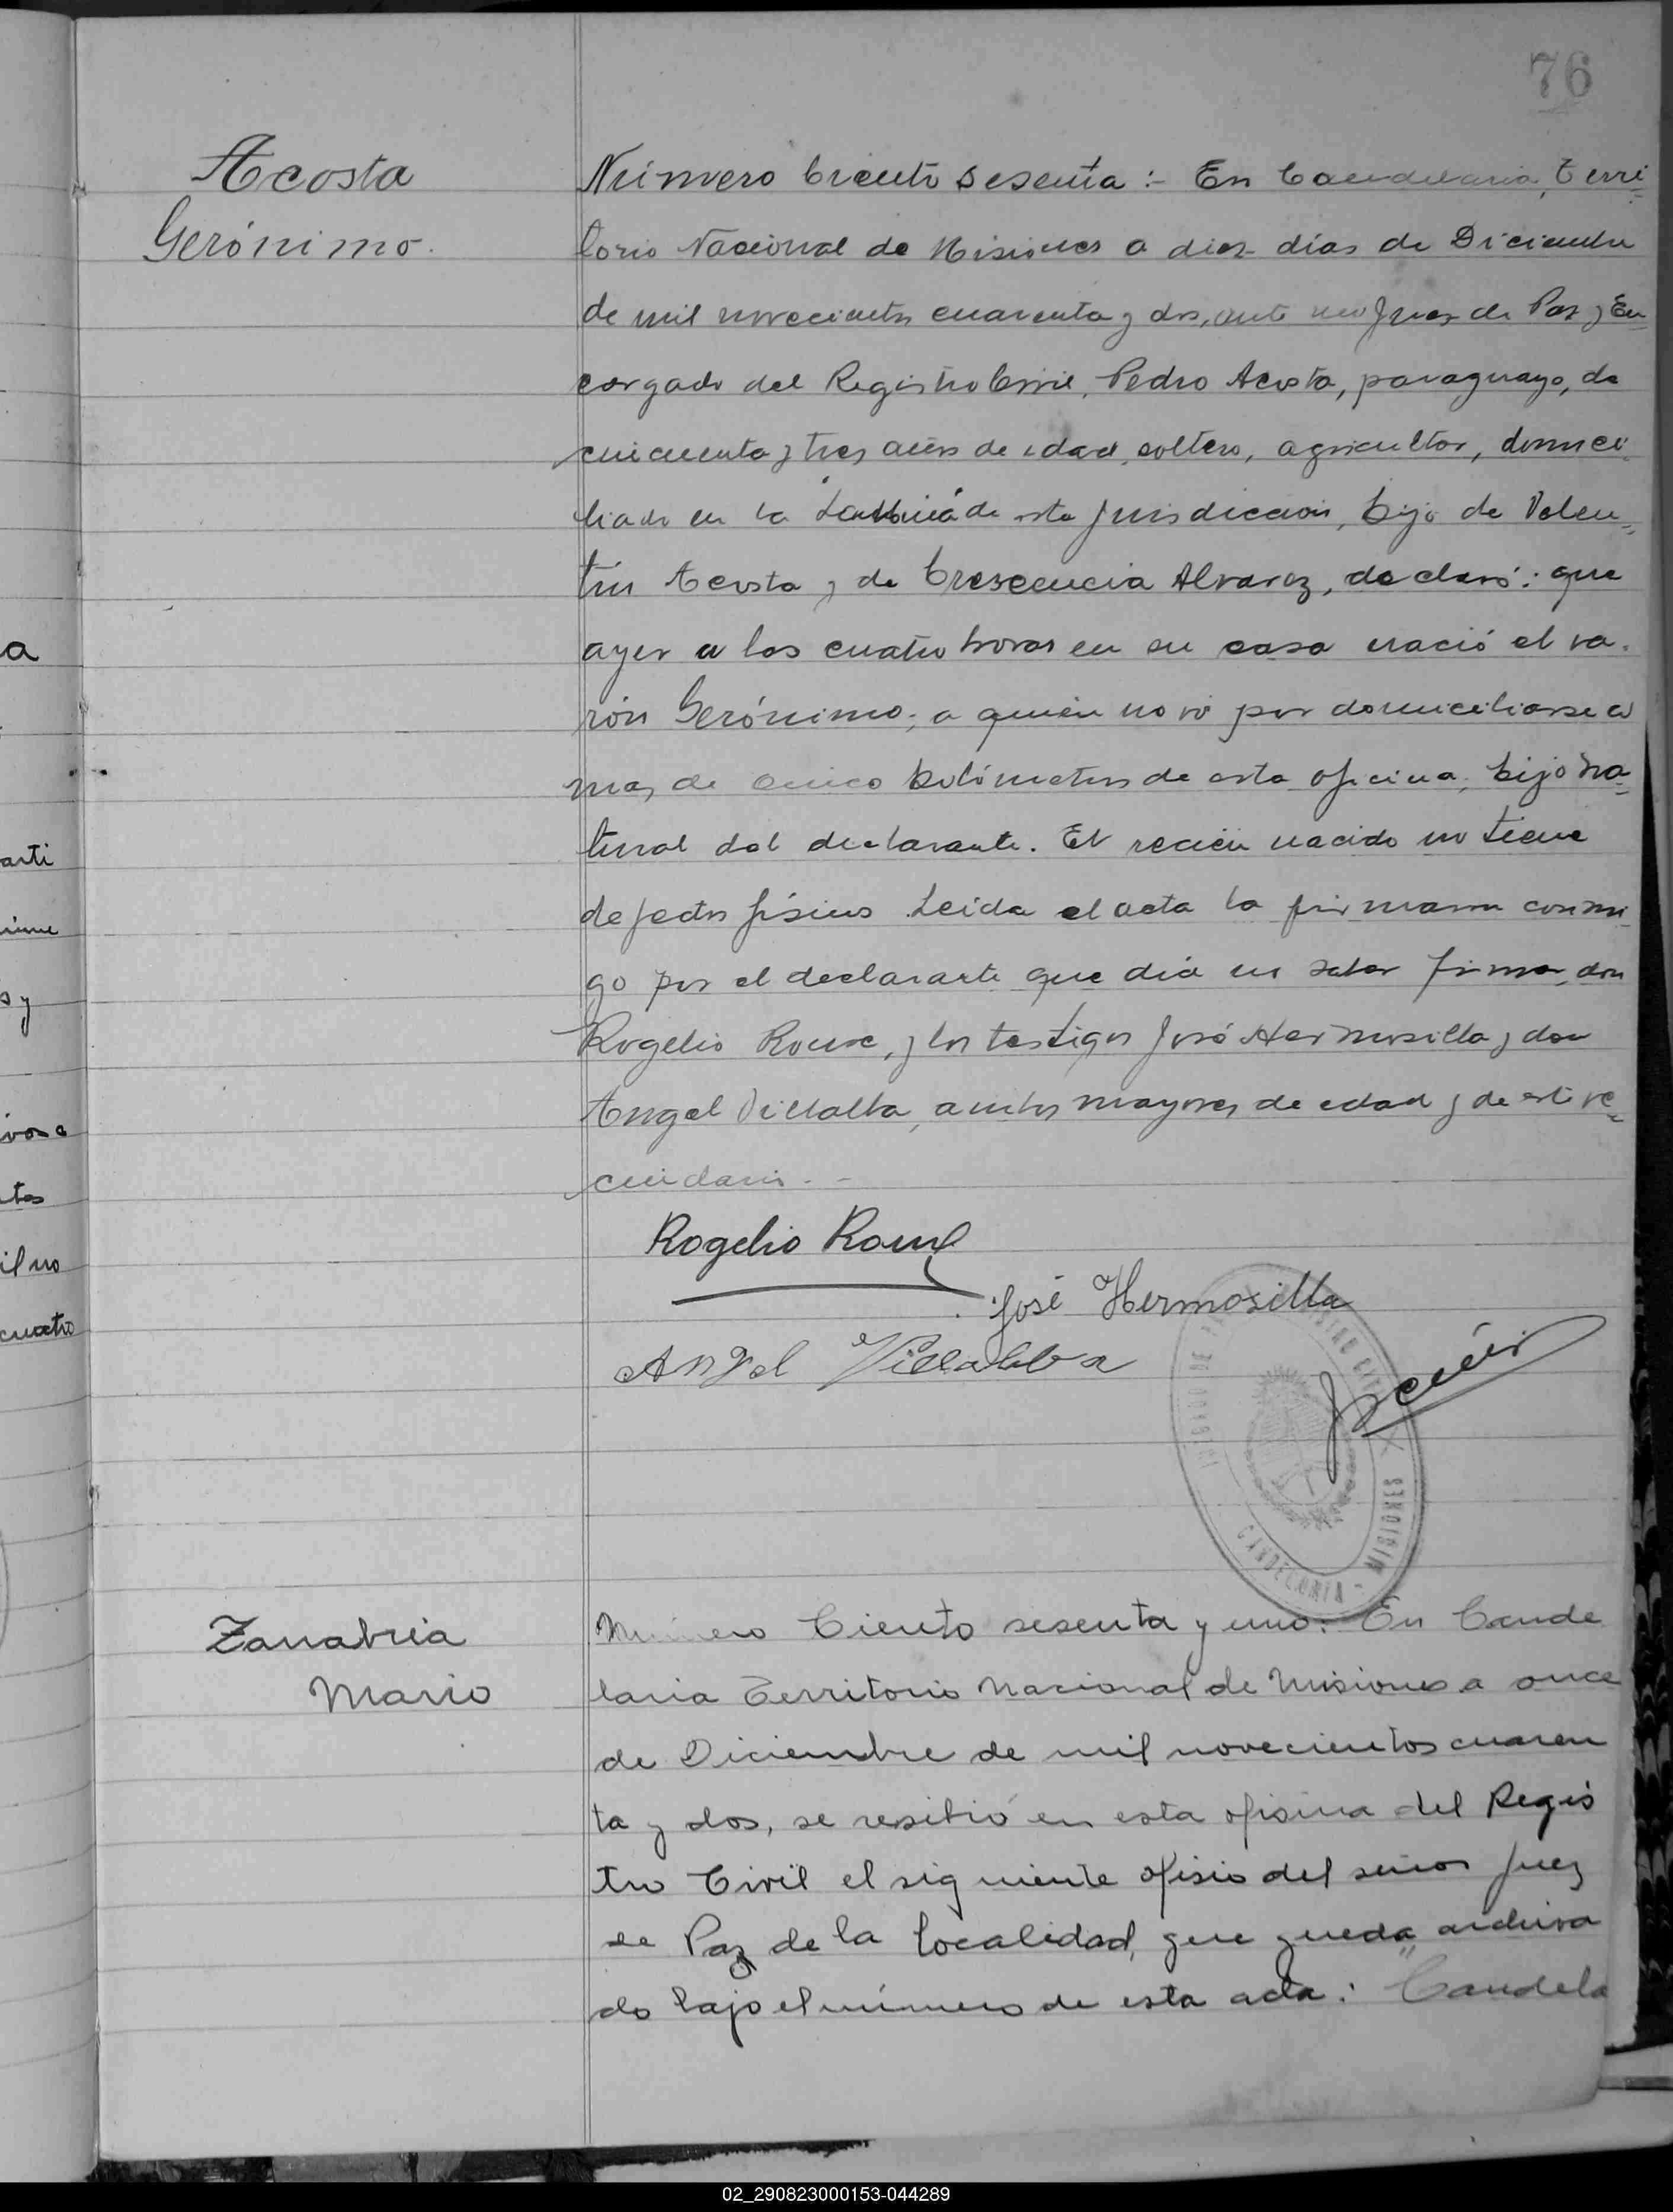 76
Acosta
Gerónimo.
Número Ciento Sesenta :- En Candelaria, Terri=
torio Nacional de Misiones a diez días de Diciembre
de mil novecientos cuarenta y dos, ante mi Juez de Paz y En=
cargado del Registro Civil, Pedro Acosta, paraguayo, de
cincuenta y tres años de edad, soltero, agricultor, domici=
liado en la de esta jurisdicción, hijo de Valen=
tín Acosta y de Crescencia Alvarez, declaró: que
ayer a las cuatro horas en su casa nació el va=
rón Gerónimo, a quien no vi por domiciliarse a
mas de cinco kilómetros de esta oficina, hijo na=
tural del declarante. El recién nacido no tiene
defectos físicos. Leída el acta la firmaron conmi=
go por el declarante que dijo no saber firmar, don
Rogelio, y los testigos José Hermosilla y don
Angel Villalba, ambos mayores de edad y de este ve=
cindario. -
Rogelio
José Hermosilla
Angel Villalba
REGISTRO CIVIL
CANDELARIA - MISIONES
Zanabria
Mario
Número Ciento sesenta y uno: En Cande
laria Territorio Nacional de Misiones a once
de Diciembre de mil novecientos cuaren
ta y dos, se resibió en esta ofisina del Regis
tro Civil el siguiente ofisio del señor Juez
de Paz de la localidad, que queda archiva
do bajo el número de esta acta: "Candela
a
arti
s y
tos
il no
cuatro
02_290823000153-044289